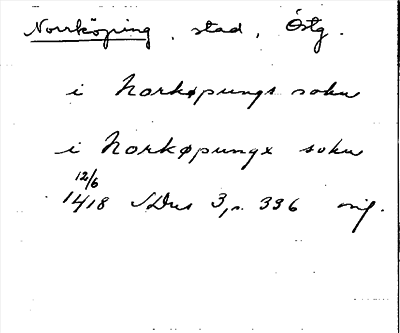 Norrköping, stad, Östg.
i Norkøpungs sokn
i Norkøpungx sokn
12/6
1418 SDns 3, s. 396 orig.